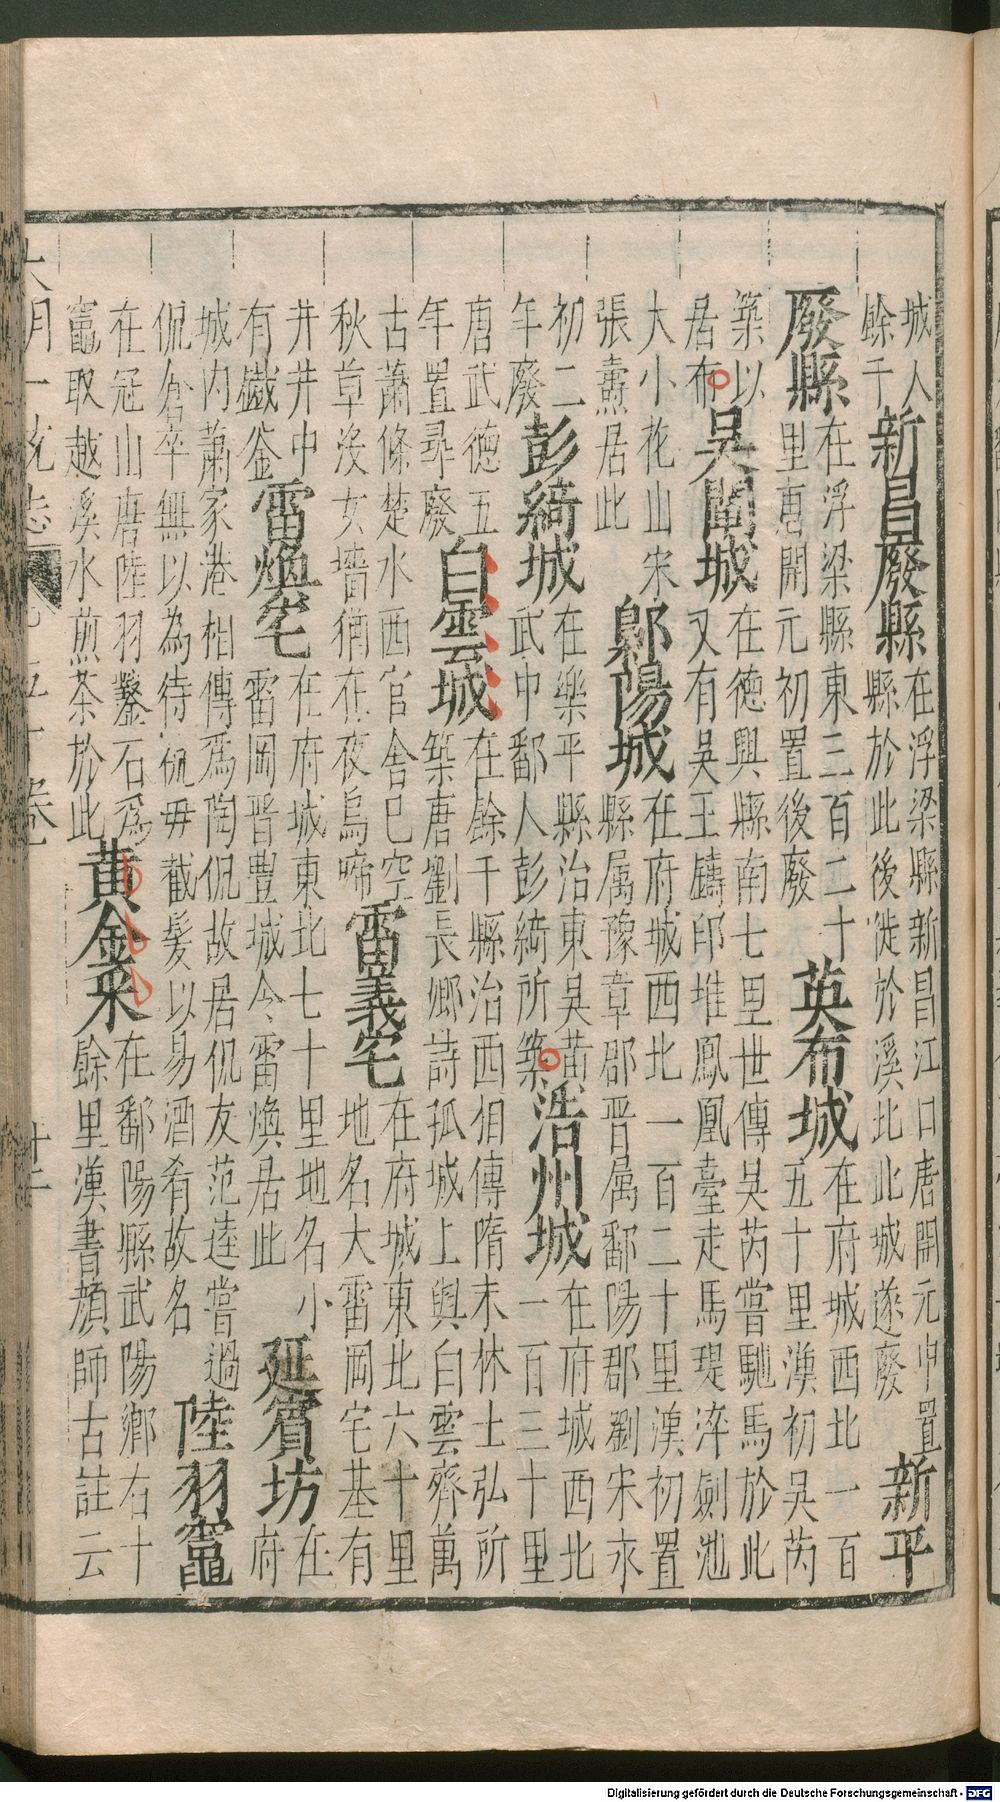 城人餘干新昌廢縣在浮梁縣新昌江口唐開元中置縣於此後徙於溪北此城遂廢新平
廢縣在浮梁縣東三百二十里唐開元初置後廢英布城在府城西北一百五十里漢初吳芮
築以居布吳閣城在德興縣南七里世傳吳芮嘗馳馬於此又有吳王鑄印堆鳳凰臺走馬堤淬劍池
大小花山宋張燾居此鄡陽城在府城西北一百二十里漢初置縣属豫章郡晉属鄱陽郡劉宋永
初二年廢彭綺城在樂平縣治東吳黃武中鄱人彭綺所築浩州城在府城西北一百三十里
唐武德五年置尋廢白雲城在餘干縣治西相傳隋末林士弘所築唐劉長卿詩孤城上與白雲齊萬
古蕭條楚水西官舍已空秋草沒女墻猶在夜烏啼雷義宅在府城東北六十里地名大雷岡宅基有
井井中有鐵釜雷煥宅在府城東北七十里地名小雷岡晉豐城令雷煥居此延賓坊在府
城內蕭家港相傳爲陶侃故居侃友范逵嘗過侃倉卒無以為待侃母截髮以易酒肴故名陸羽竈
在冠山唐陸羽鑿石爲竈取越溪水煎茶於此黃金采在鄱陽縣武陽鄉右十餘里漢書顏師古註云
大明一統志
Digitalisierung gefördert durch die Deutsche Forschungsgemeinschaft - DFG